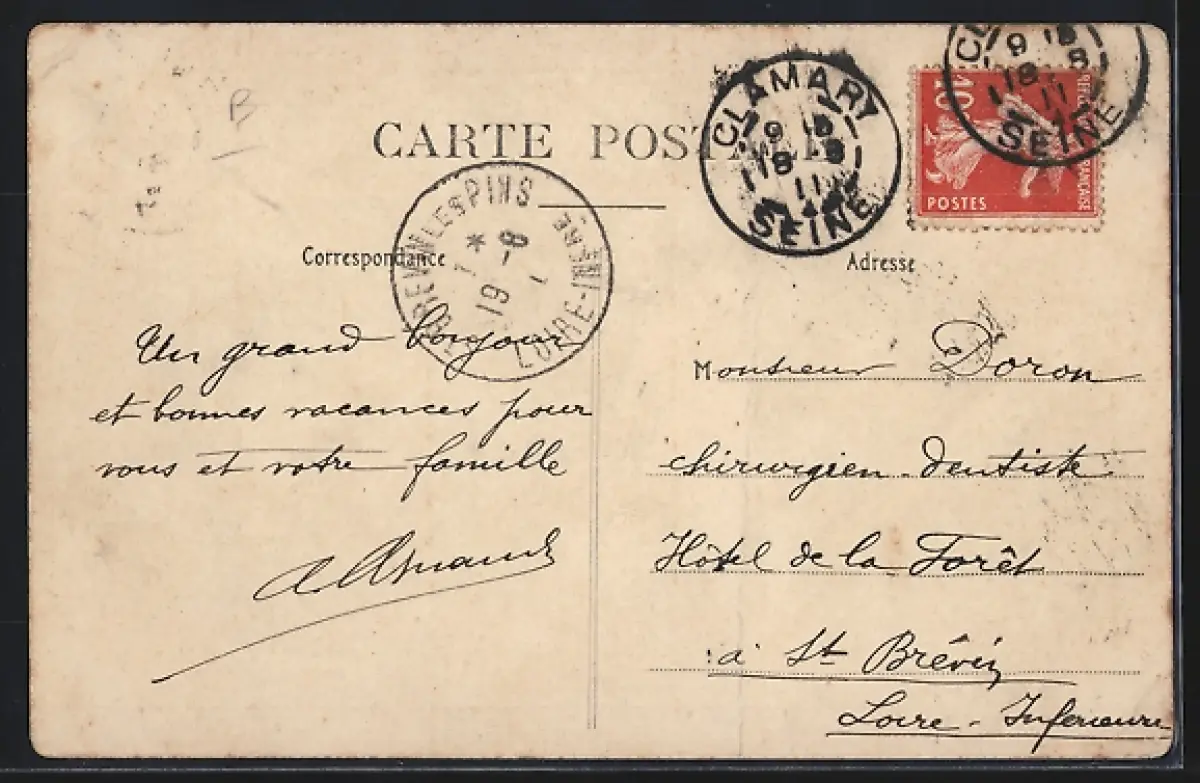 CARTE POSTALE
CLAMART
9
18 8
11
SEINE
9
18 8
11
SEINE
10
POSTES
FRANÇAISE
LES PINS
8
19
LOIRE-INFRE
B
Correspondance
Un grand bonjour
et bonnes vacances pour
vous et votre famille
Adresse
Monsieur Doron
chirurgien-dentiste
Hôtel de la Forêt
à St Brévin
Loire-Inférieure